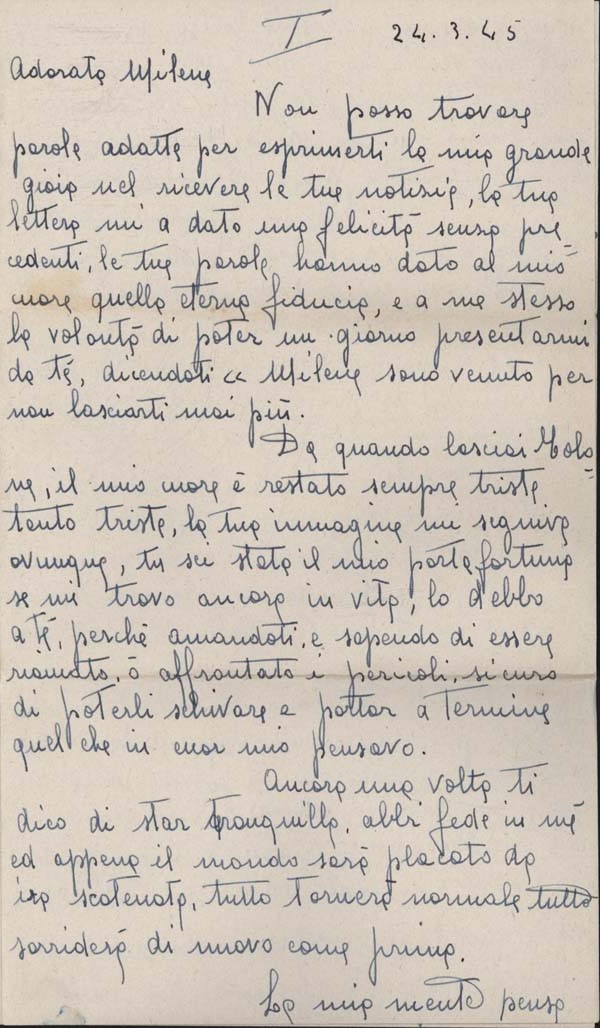 I 24.3.45
Adorata Milena
Non posso trovare
parole adatte per esprimerti la mia grande
gioia nel ricevere le tue notizie, la tua
lettera mi a dato una felicità senza pre
cedenti, le tue parole, hanno dato al mio
cuore quella eterna fiducia, e a me stesso
la volontà di poter un giorno presentarmi
da té, dicendoti « Milena sono venuto per
non lasciarti mai più.
Da quando lasciai Molo
ne, il mio cuore è restato sempre triste
tanto triste, la tua immagine mi seguiva
ovunque, tu sei stata il mio porta fortuna
se mi trovo ancora in vita, lo debbo
a té, perché amandoti, e sapendo di essere
riamato, ò affrontato i pericoli, sicuro
di poterli schivare e portar a termine
quel che in cuor mio pensavo.
Ancora una volta ti
dico di star tranquilla, abbi fede in mé
ed appena il mondo sarà placato da
ira scatenata, tutto tornerà normale tutto
sorriderà di nuovo come prima.
La mia mente pensa